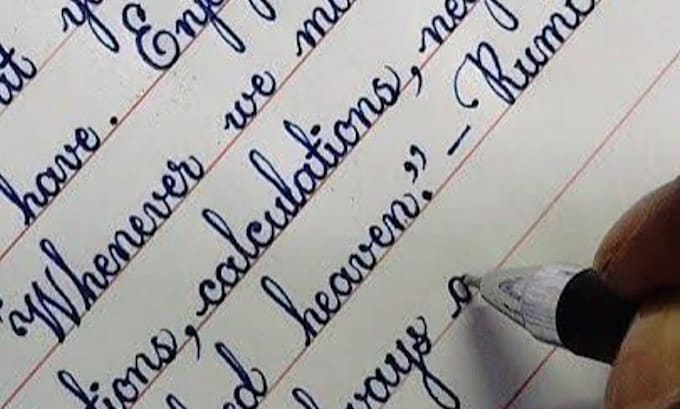 at y
have. Enj
"Whenever we mi
tions, calculations, ne
ed heaven." – Rumi
ways a